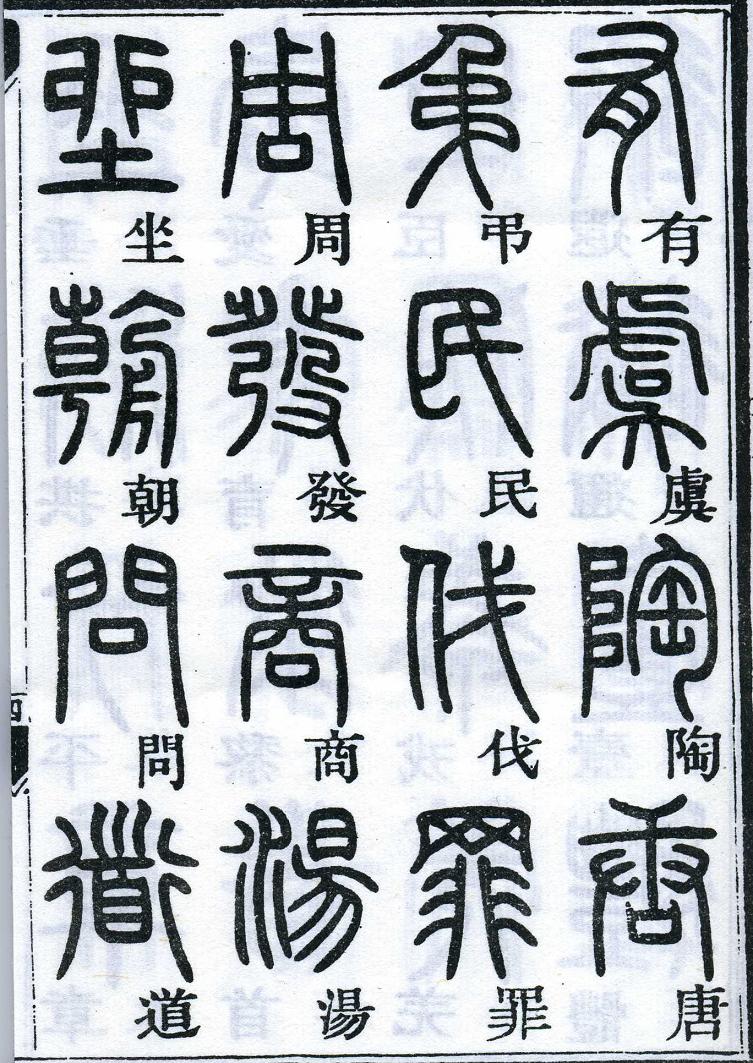 有虞陶唐
弔民伐罪
周發商湯
坐朝問道